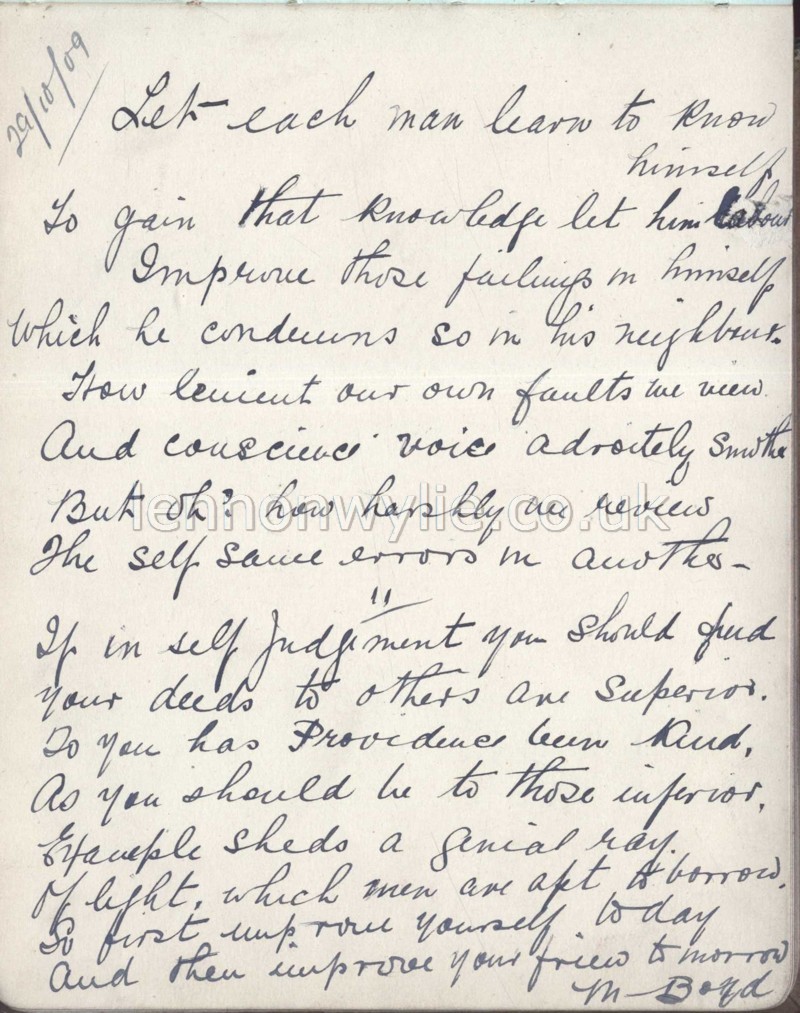 29/10/09
Let each man learn to know
himself
To gain that knowledge let him labour
Improve those failings in himself
Which he condemns so in his neighbour.
How lenient our own faults we view
And conscience' voice adroitely smother
But oh? how harshly we review
The self same errors in another -
"
If in self judgement you should find
Your deeds to others are superior.
To you has Providence been kind,
As you should be to those inferior,
Example sheds a genial ray.
Of light, which men are apt to borrow.
So first improve yourself today
And then improve your friend tomorrow
M Boyd
lennonwylie.co.uk